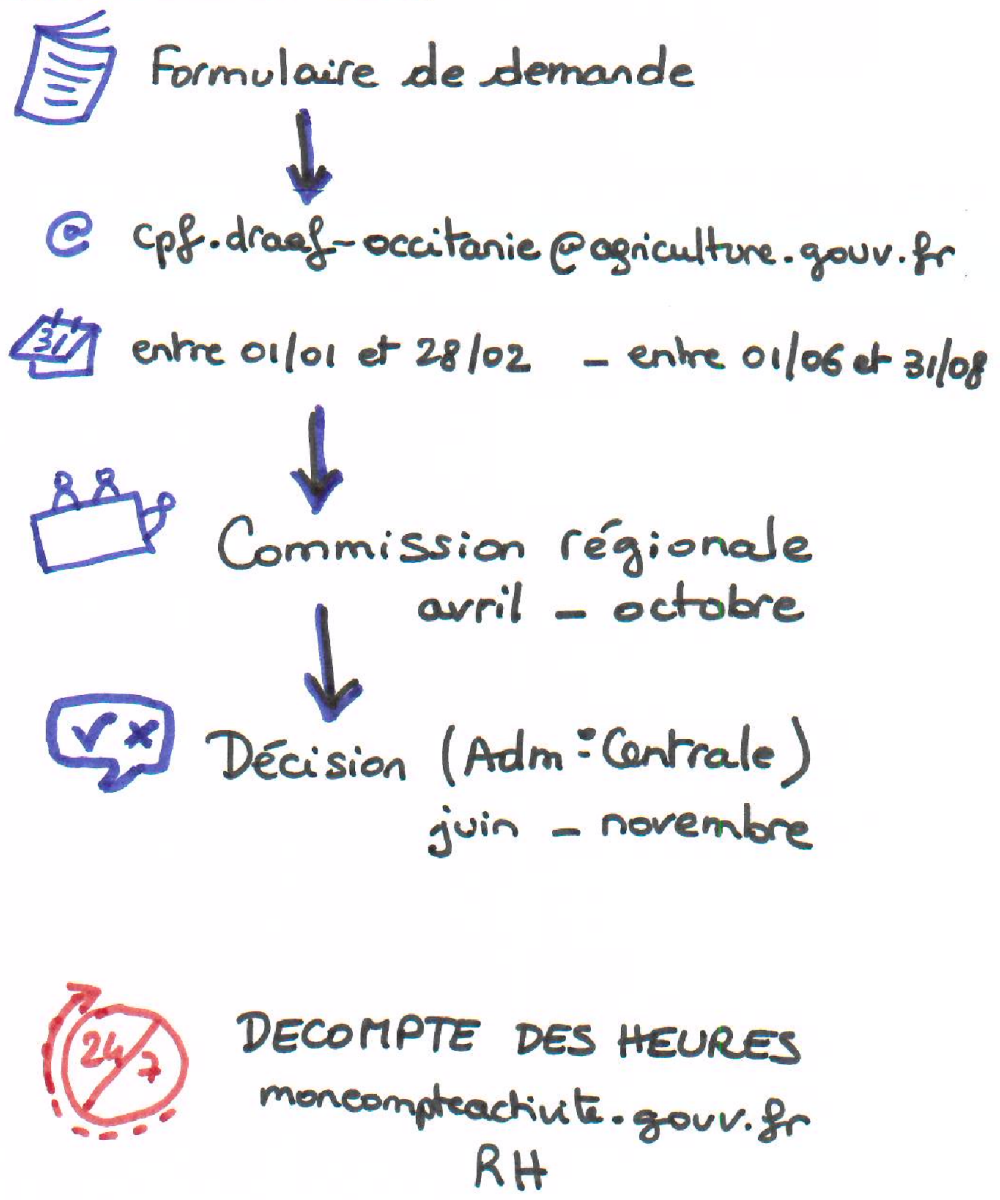 Formulaire de demande
@ cpf.draaf-occitanie@agriculture.gouv.fr
31 entre 01/01 et 28/02 - entre 01/06 et 31/08
Commission régionale
avril - octobre
Décision (Adm° Centrale)
juin - novembre
24/7
DECOMPTE DES HEURES
moncompteactivite.gouv.fr
RH